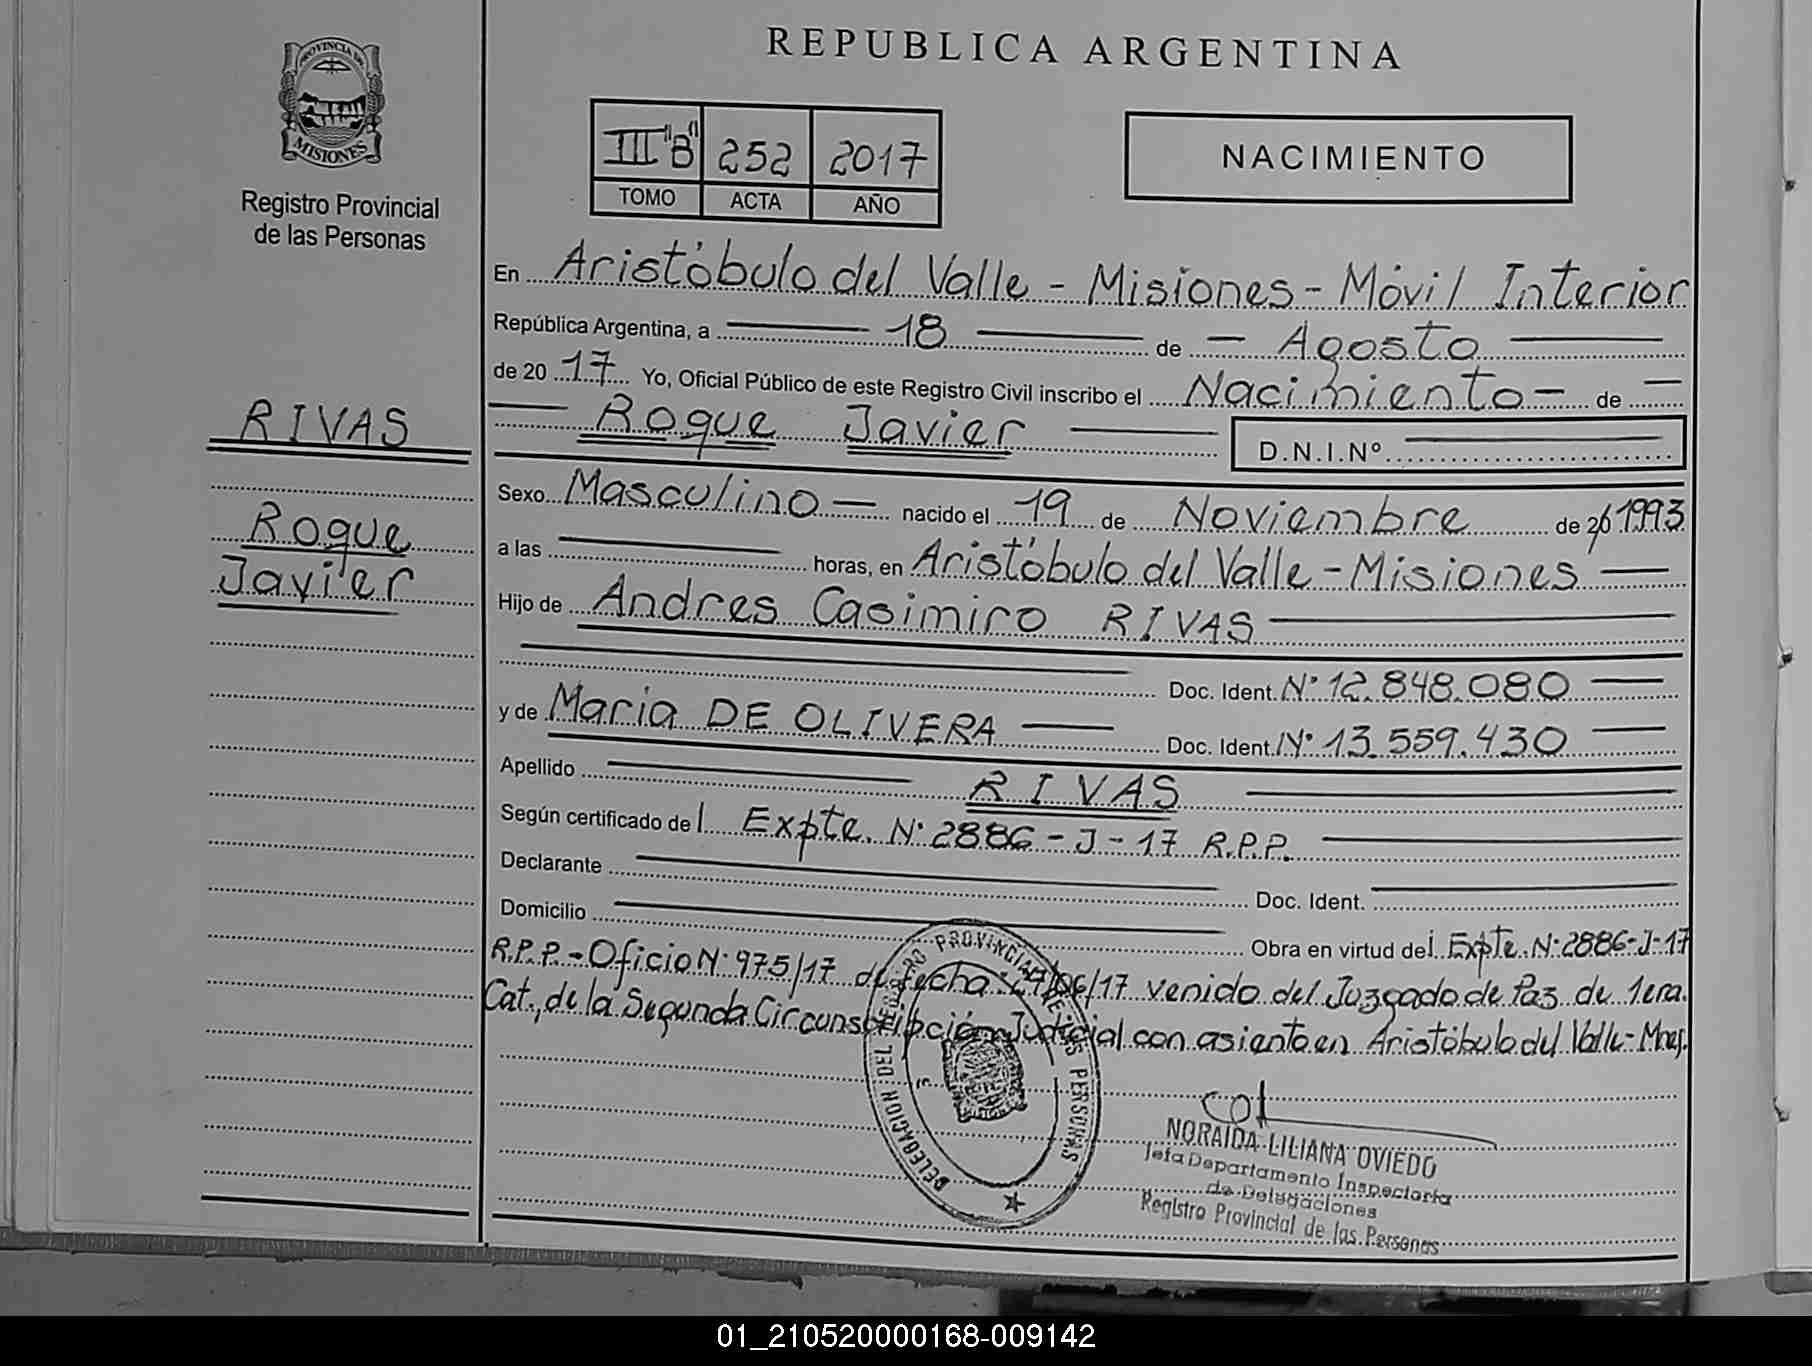 REPUBLICA ARGENTINA
PROVINCIA DE
MISIONES
Registro Provincial
de las Personas
III "B" 252 2017
TOMO ACTA AÑO
NACIMIENTO
En Aristóbulo del Valle - Misiones - Móvil Interior
República Argentina, a 18 de Agosto
de 20 17 Yo, Oficial Público de este Registro Civil inscribo el Nacimiento de
Roque Javier D.N.I.Nº
RIVAS
Roque
Javier
Sexo Masculino nacido el 19 de Noviembre de 1993
a las horas, en Aristóbulo del Valle - Misiones
Hijo de Andres Casimiro RIVAS
Doc. Ident. Nº 12.848.080
y de Maria DE OLIVERA Doc. Ident. Nº 13.559.430
Apellido RIVAS
Según certificado de l Expte. Nº 2886 - J - 17 R.P.P.
Declarante Doc. Ident.
Domicilio Obra en virtud del Expte. Nº 2886-J-17
R.P.P. - Oficio Nº 975/17 de fecha /06/17 venido del Juzgado de Paz de 1era.
Cat., de la Segunda Circunscripción Judicial con asiento en Aristóbulo del Valle - Mnes.
DELEGACION DEL REGISTRO PROVINCIAL DE LAS PERSONAS
NORAIDA LILIANA OVIEDO
Jefa Departamento Inspectoria
de Delegaciones
Registro Provincial de las Personas
01_210520000168-009142